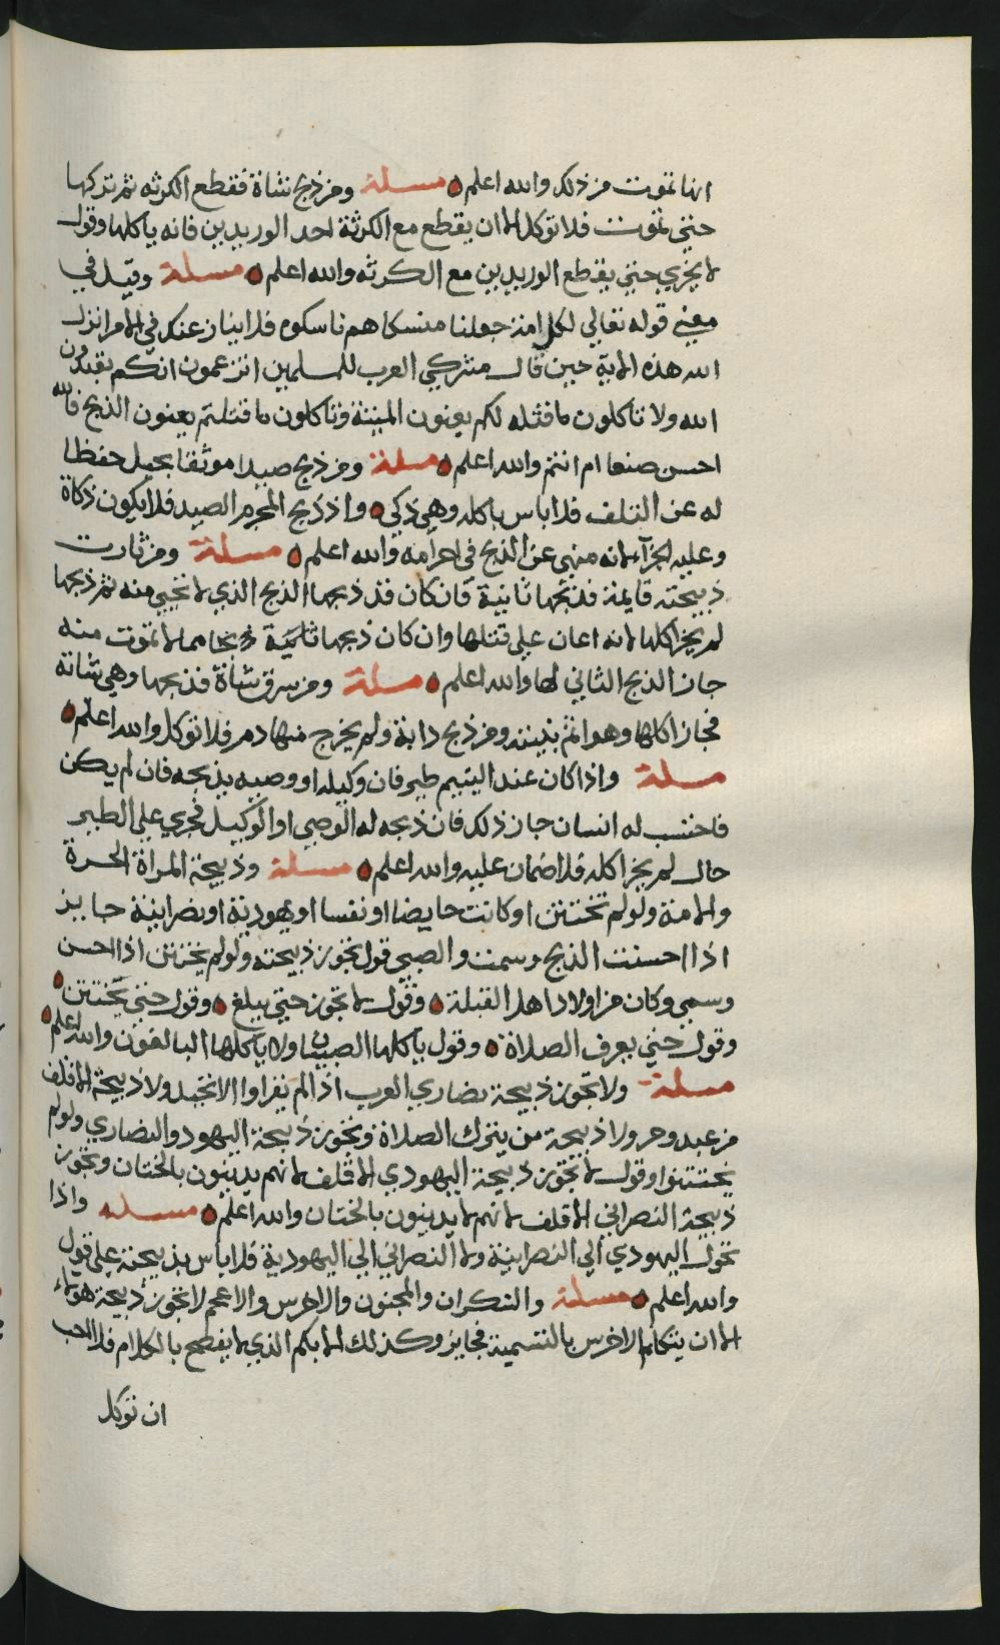 انها تموت من ذلك والله اعلم مسلة ومن ذبح شاة فقطع الكرثه ثم تركها
حتي تموت فلا توكل الا ان يقطع مع الكرثة احد الوريدين فانه ياكلها وقول
لا يجزي حتي يقطع الوريدين مع الكرثه والله اعلم مسلة وقيل في
معني قوله تعالي لكل امة جعلنا منسكا هم ناسكوه فلا ينازعنك في الامر انزل
الله هذه الاية حين قال مشركي العرب للمسلمين اتزعمون انكم تعبدون
الله ولا تاكلون ما قتله لكم يعنون الميتة وتاكلون ما قتلتم يعنون الذبح فالله
احسن صنعا ام انتم والله اعلم مسلة ومن ذبح صيدا موثقا بحبل حفظا
له عن التلف فلا باس باكله وهي ذكي واذ ذبح المحرم الصيد فلا يكون ذكاة
وعليه الجزآ لانه منهي عن الذبح في احرامه والله اعلم مسلة ومن ثارت
ذبيحته قايمة فذبحها ثانية فان كان قد ذبحها الذبح الذي لا تحيي منه ثم ذبحها
لم يجز اكلها لانه اعان علي قتلها وان كان ذبحها ثانية ذبحا مما لا تموت منه
جاز الذبح الثاني لها والله اعلم مسلة ومن سرق شاة فذبحها وهي شاته
فجاز اكلها وهو اثم بنيته ومن ذبح دابة ولم يخرج منها دم فلا توكل والله اعلم
مسلة واذا كان عند اليتيم طير فان وكيله او وصيه يذبحه فان لم يكن
فاحتسب له انسان جاز ذلك فان ذبحه له الوصي او الوكيل فجري علي الطير
حال لم يجز اكله فلا ضمان عليه والله اعلم مسلة وذبيحة المراة الحرة
والامة ولو لم تختتن او كانت حايضا او نفسا او يهودية او نصرانية جايز
اذا احسنت الذبح وسمت والصبي قول تجوز ذبيحته ولو لم يختتن اذا احسن
وسمي وكان من اولاد اهل القبلة وقول لا تجوز حتي يبلغ وقول حتي يختتن
وقول حتي يعرف الصلاة وقول ياكلها الصبيان ولا ياكلها البالغون والله اعلم
مسلة ولا تجوز ذبيحة نصاري العرب اذا لم يقراوا الانجيل ولا ذبيحة الاقلف
من عبد وحر ولا ذبيحة من يترك الصلاة وتجوز ذبيحة اليهود والنصاري ولو لم
يختتنوا وقول لا تجوز ذبيحة اليهودي الاقلف لانهم يدينون بالختان وتجوز
ذبيحة النصراني الاقلف لانهم لا يدينون بالختان والله اعلم مسله واذا
تحول اليهودي الي النصرانية ولا النصراني الي اليهودية فلا باس بذبيحته علي قول
والله اعلم مسلة والسكران والمجنون والاخرس والاعجم لا تجوز ذبيحة هولاء
الا ان يتكلم الاخرس بالتسمية فجايز وكذلك الابكم الذي لا يفصح بالكلام فلا احب
ان توكل